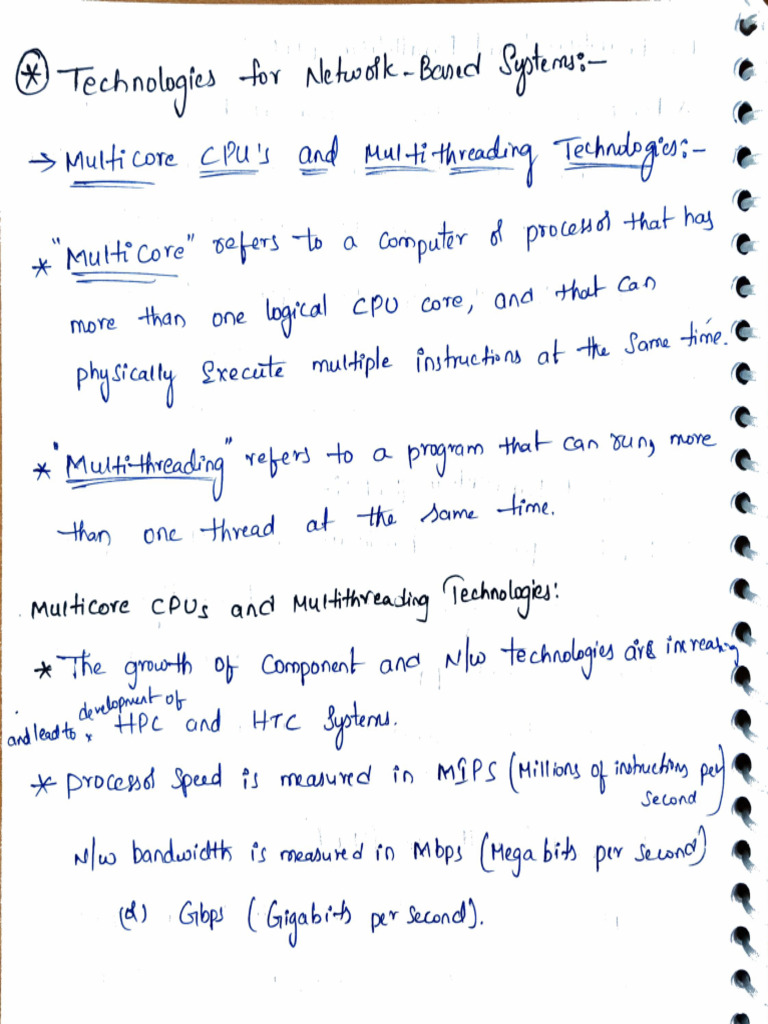 * Technologies for Network-Based Systems:-
→ Multicore CPU's and Multithreading Technologies:-
* "Multicore" refers to a computer or processor that has
more than one logical CPU core, and that can
physically Execute multiple instructions at the same time.
* "Multithreading" refers to a program that can run, more
than one thread at the same time.
Multicore CPUs and Multithreading Technologies:
* The growth of component and N/w technologies are increasing
and lead to development of HPC and HTC Systems.
* processor speed is measured in MIPS (Millions of instructions per second)
N/w bandwidth is measured in Mbps (Mega bits per second)
(or) Gbps (Gigabits per second).